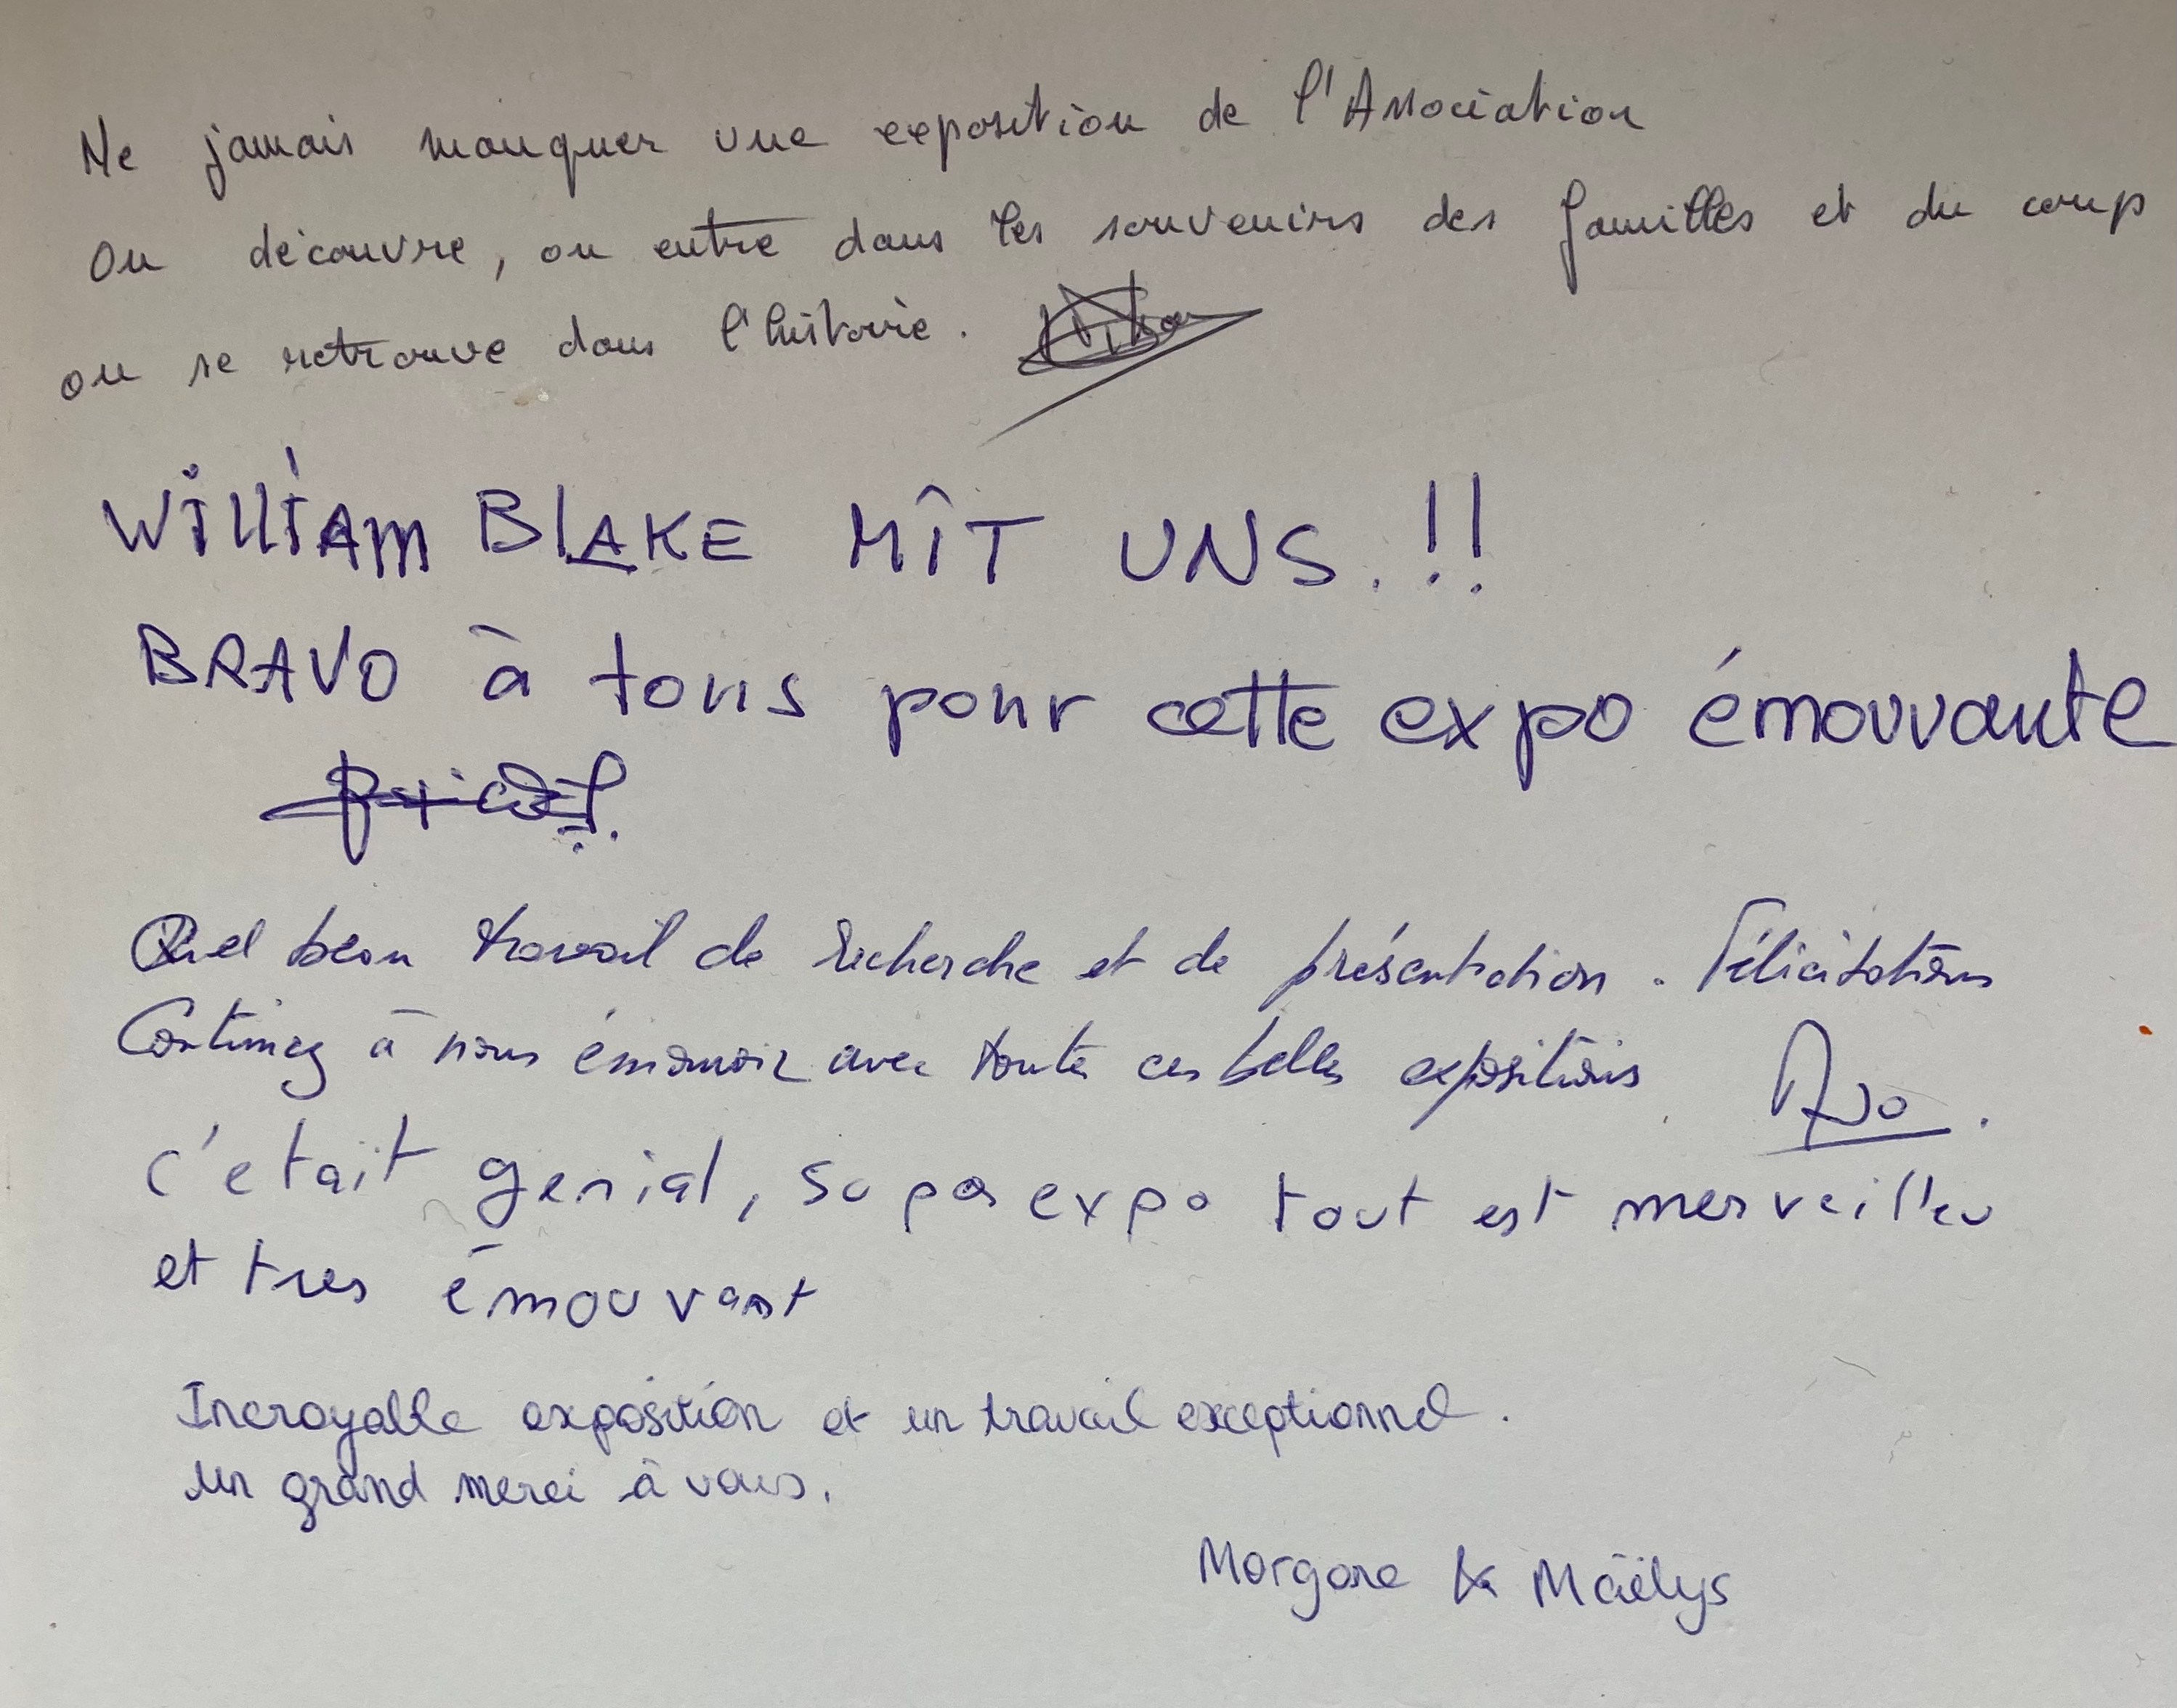 Ne jamais manquer une exposition de l'Association
On découvre, on entre dans les souvenirs des familles et du coup
on se retrouve dans l'histoire.
WILLIAM BLAKE MÎT UNS.!!
BRAVO à tous pour cette expo émouvante
Quel beau travail de recherche et de présentation. Félicitations
Continuez à nous émouvoir avec toute ces belles expositions
c'etait genial, super expo tout est merveilleu
et tres émouvant
Incroyable exposition et un travail exceptionnel.
Un grand merci à vous.
Morgane & Maëlys